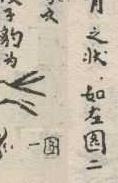 月之狀.如左圖二
文
子豹为
圖一